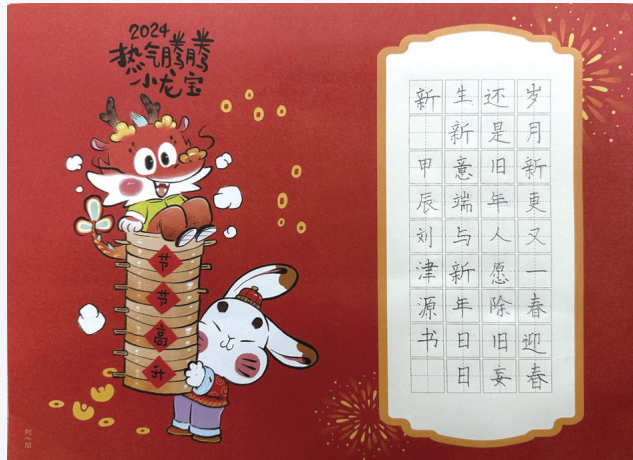 2024
热气腾腾
小龙宝
节节高升
岁月新更又一春迎春
还是旧年人愿除旧妄
生新意端与新年日日
新 甲辰刘津源书